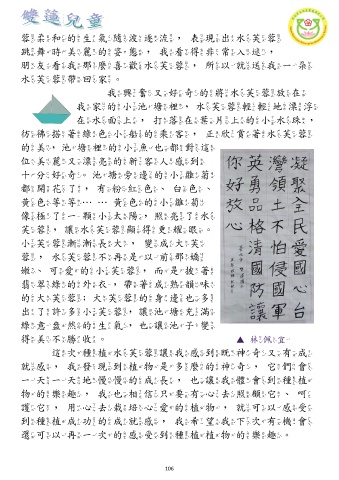 雙蓮兒童
蓉柔和的生氣隨波逐流，表現出水芙蓉
跳舞時美麗的姿態，我看得非常入迷，
朋友看我那麼喜歡水芙蓉，所以就送我一朵
水芙蓉帶回家。
我興奮又好奇的將水芙蓉放在
我家的小池塘裡，水芙蓉輕輕地漂浮
在水面上，打落在葉片上的小水珠，
彷彿搭著綠色小船的乘客，正欣賞著水芙蓉
的美，池塘裡的小魚也都對這
位美麗又漂亮的新客人感到
十分好奇。池塘旁邊的小雛菊
都開花了，有粉紅色、白色、
黃色等等……黃色的小雛菊
像極了一顆小太陽，照亮了水
芙蓉，讓水芙蓉顯得更耀眼。
小芙蓉漸漸長大，變成大芙
蓉，水芙蓉不再是以前那嬌
嫩、可愛的小芙蓉，而是披著
翡翠綠的外衣，帶著成熟韻味
的大芙蓉；大芙蓉的身邊也多
出了許多小芙蓉，讓池塘充滿
綠意盎然的生氣，也讓池子變
得美不勝收。
這次種植水芙蓉讓我感到既神奇又有成
就感，我發現到植物是多麼的神奇，它們會
一天一天地慢慢的成長，也讓我體會到種植
物的樂趣，我也相信只要有心去照顧它、呵
護它，用心去栽培心愛的植物，就可以感受
到種植成功的成就感，我希望我下次有機會
還可以再一次的感受到種植植物的樂趣。
凝聚全民愛國心
灣領土不怕侵國軍台
英勇品格清國防讓
你好放心
▲ 林佩宜
106